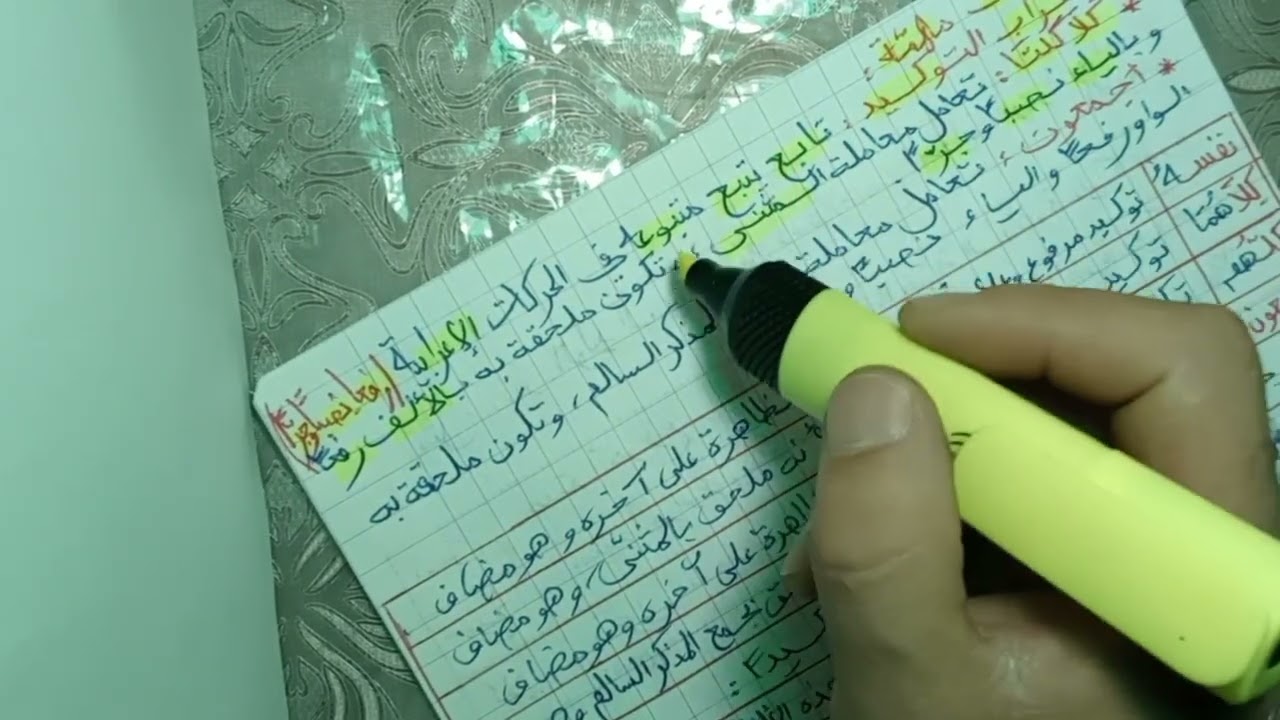 ثالثا:
إعراب التوكيد: تابع يتبع متبوعه في الحركات الإعرابية (رفعا نصبا وجرًّا)
* كلا كلتا: تعامل معاملة المثنى، تكون ملحقة به بالألف رفعًا
وبالياء نصبًا وجرًّا
* أجمعون: تعامل معاملة المذكر السالم، وتكون ملحقة به
الواو رفعًا والياء نصبًا
نفسه توكيد مرفوع الظاهرة على آخره وهو مضاف
كلاهما توكيد أنه ملحق بالمثنى، وهو مضاف
كلهم الظاهرة على آخره وهو مضاف
بجمع المذكر السالم